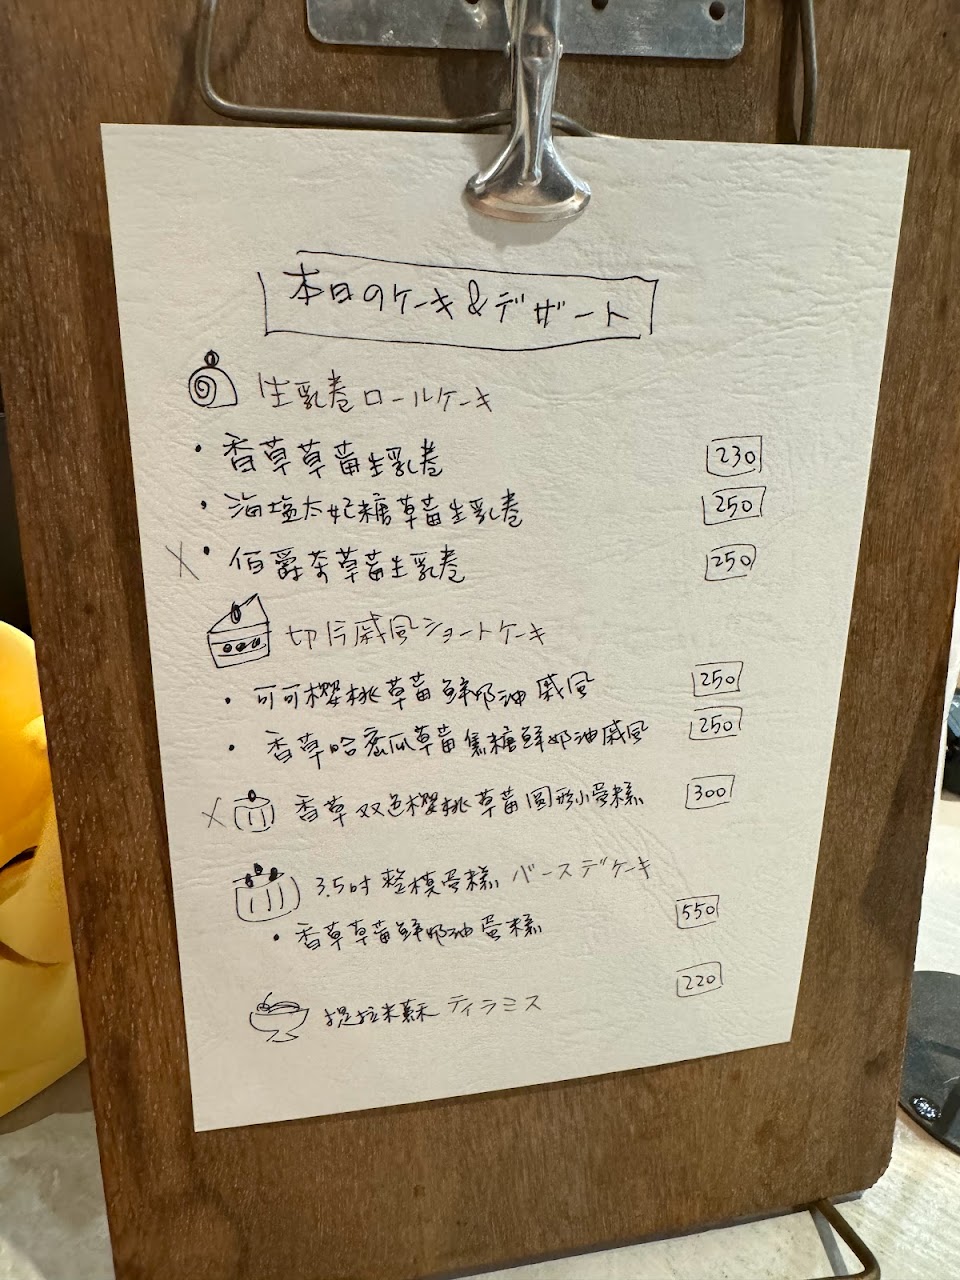 本日のケーキ&デザート
生乳卷ロールケーキ
・香草草莓生乳卷 230
・海塩太妃糖草莓生乳卷 250
X・伯爵茶草莓生乳卷 250
切片戚風ショートケーキ
・可可櫻桃草莓鮮奶油戚風 250
・香草哈密瓜草莓焦糖鮮奶油戚風 250
X 香草双色櫻桃草莓圓形小蛋糕 300
3.5吋整模蛋糕 バースデケーキ
・香草草莓鮮奶油蛋糕 550
提拉米蘇 ティラミス 220